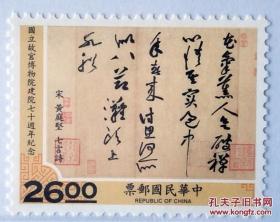 花氣薰人欲破禪
心情其實過中
年春來詩思何所
似八節灘頭上
水船
宋 黃庭堅 七言詩
國立故宮博物院建院七十週年紀念
26.00
中華民國郵票
REPUBLIC OF CHINA